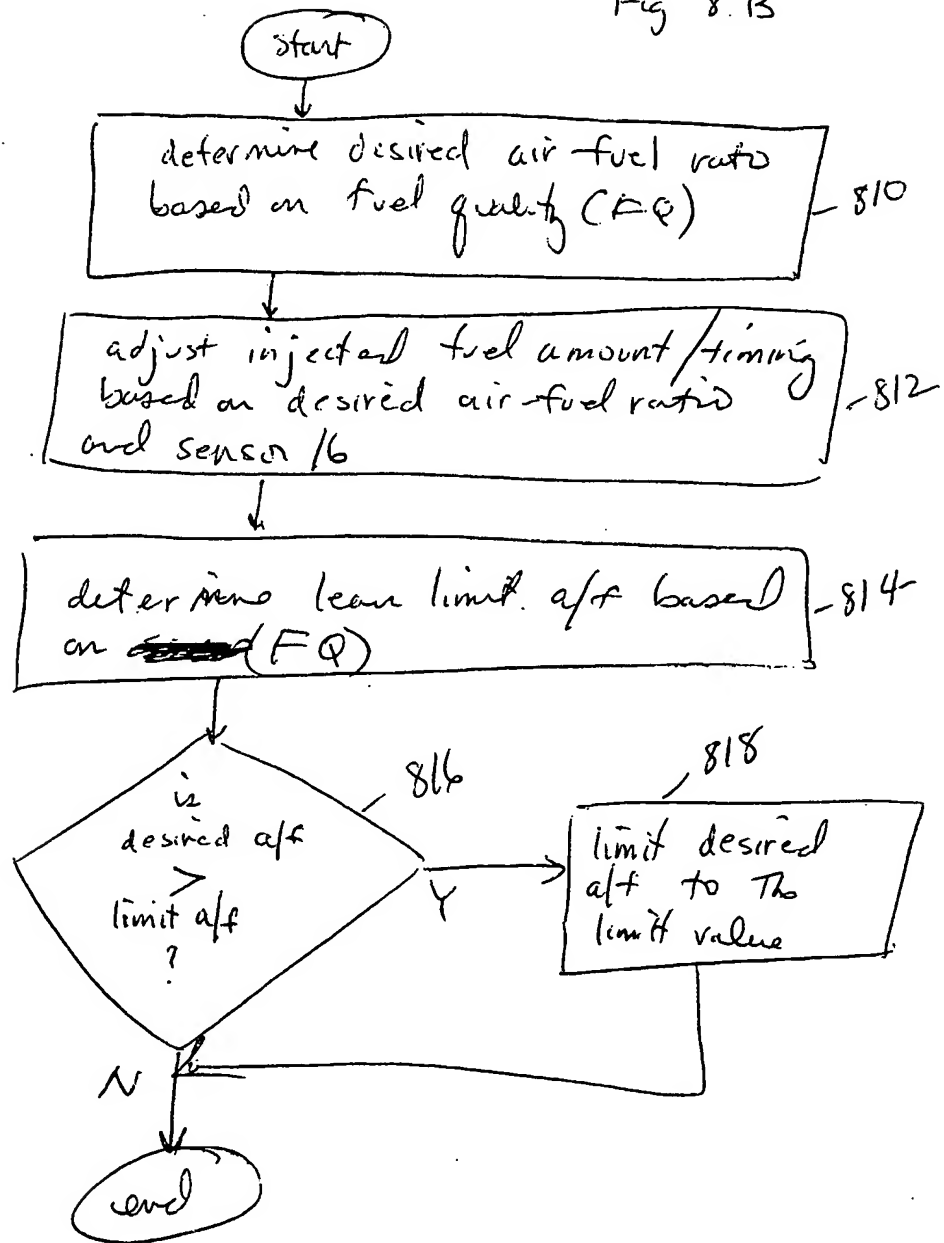 Fig 8.B
start
determine desired air-fuel ratio
based on fuel quality (FQ)
810
adjust injected fuel amount/timing
based on desired air-fuel ratio
and sensor 16
812
determine lean limit a/f based
on (FQ)
814
is
desired a/f
>
limit a/f
?
816
Y
818
limit desired
a/f to the
limit value
N
end